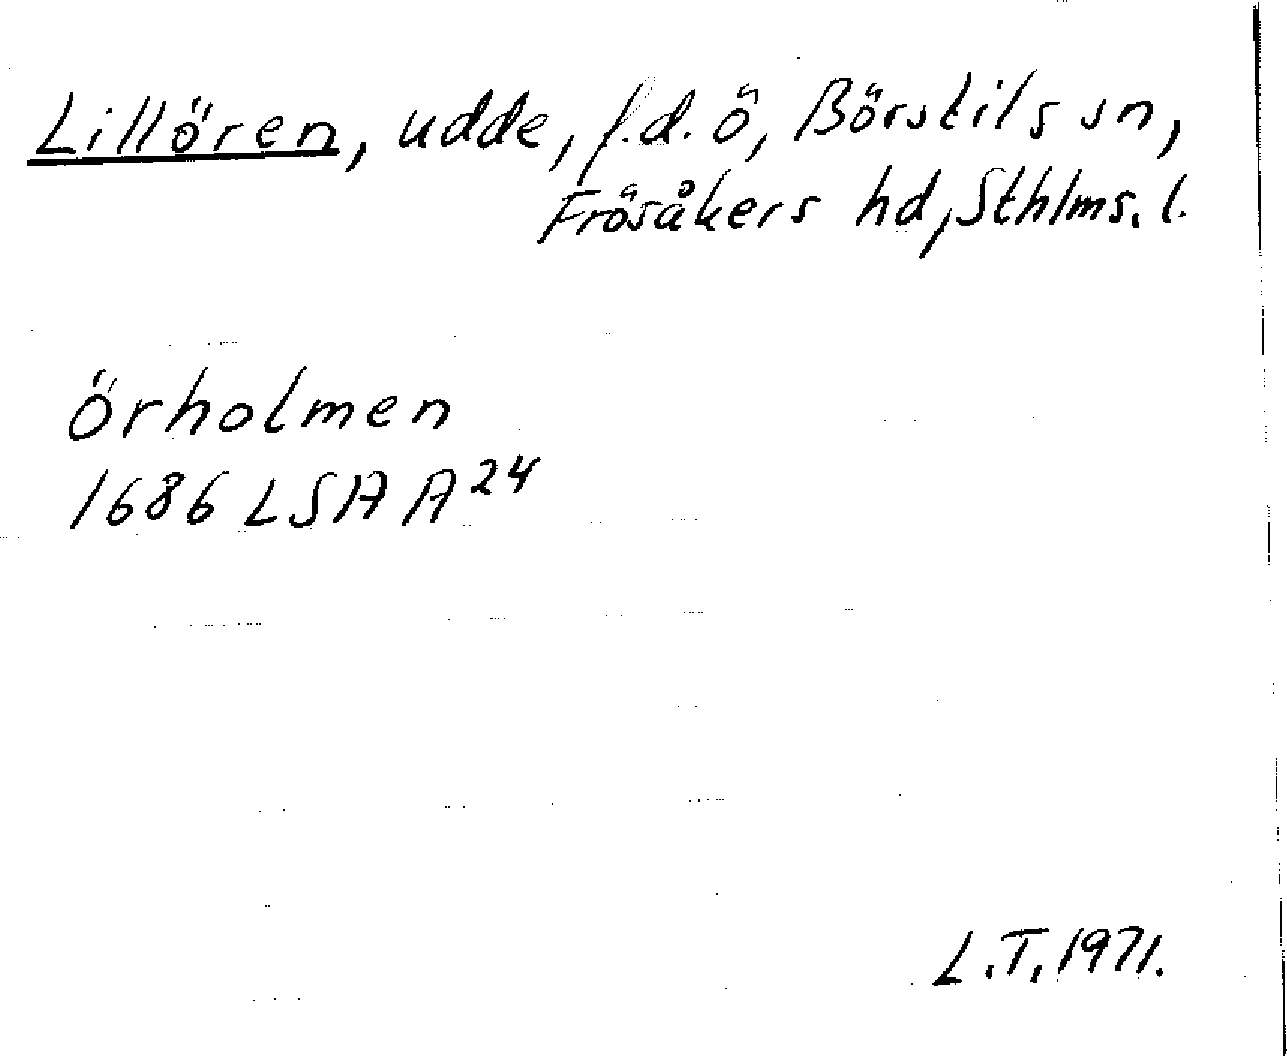 Lillören, udde, f.d. ö, Börstils sn,
Frösåkers hd, Sthlms. l.
Örholmen
1686 LSA A 24
L.T. 1971.